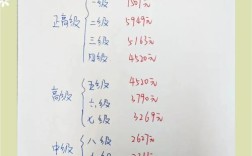 正高级
一级
二级 5949元
三级 5163元
四级 4520元
高级
五级 4520元
六级 3790元
七级 3269元
中级
八级 2627元